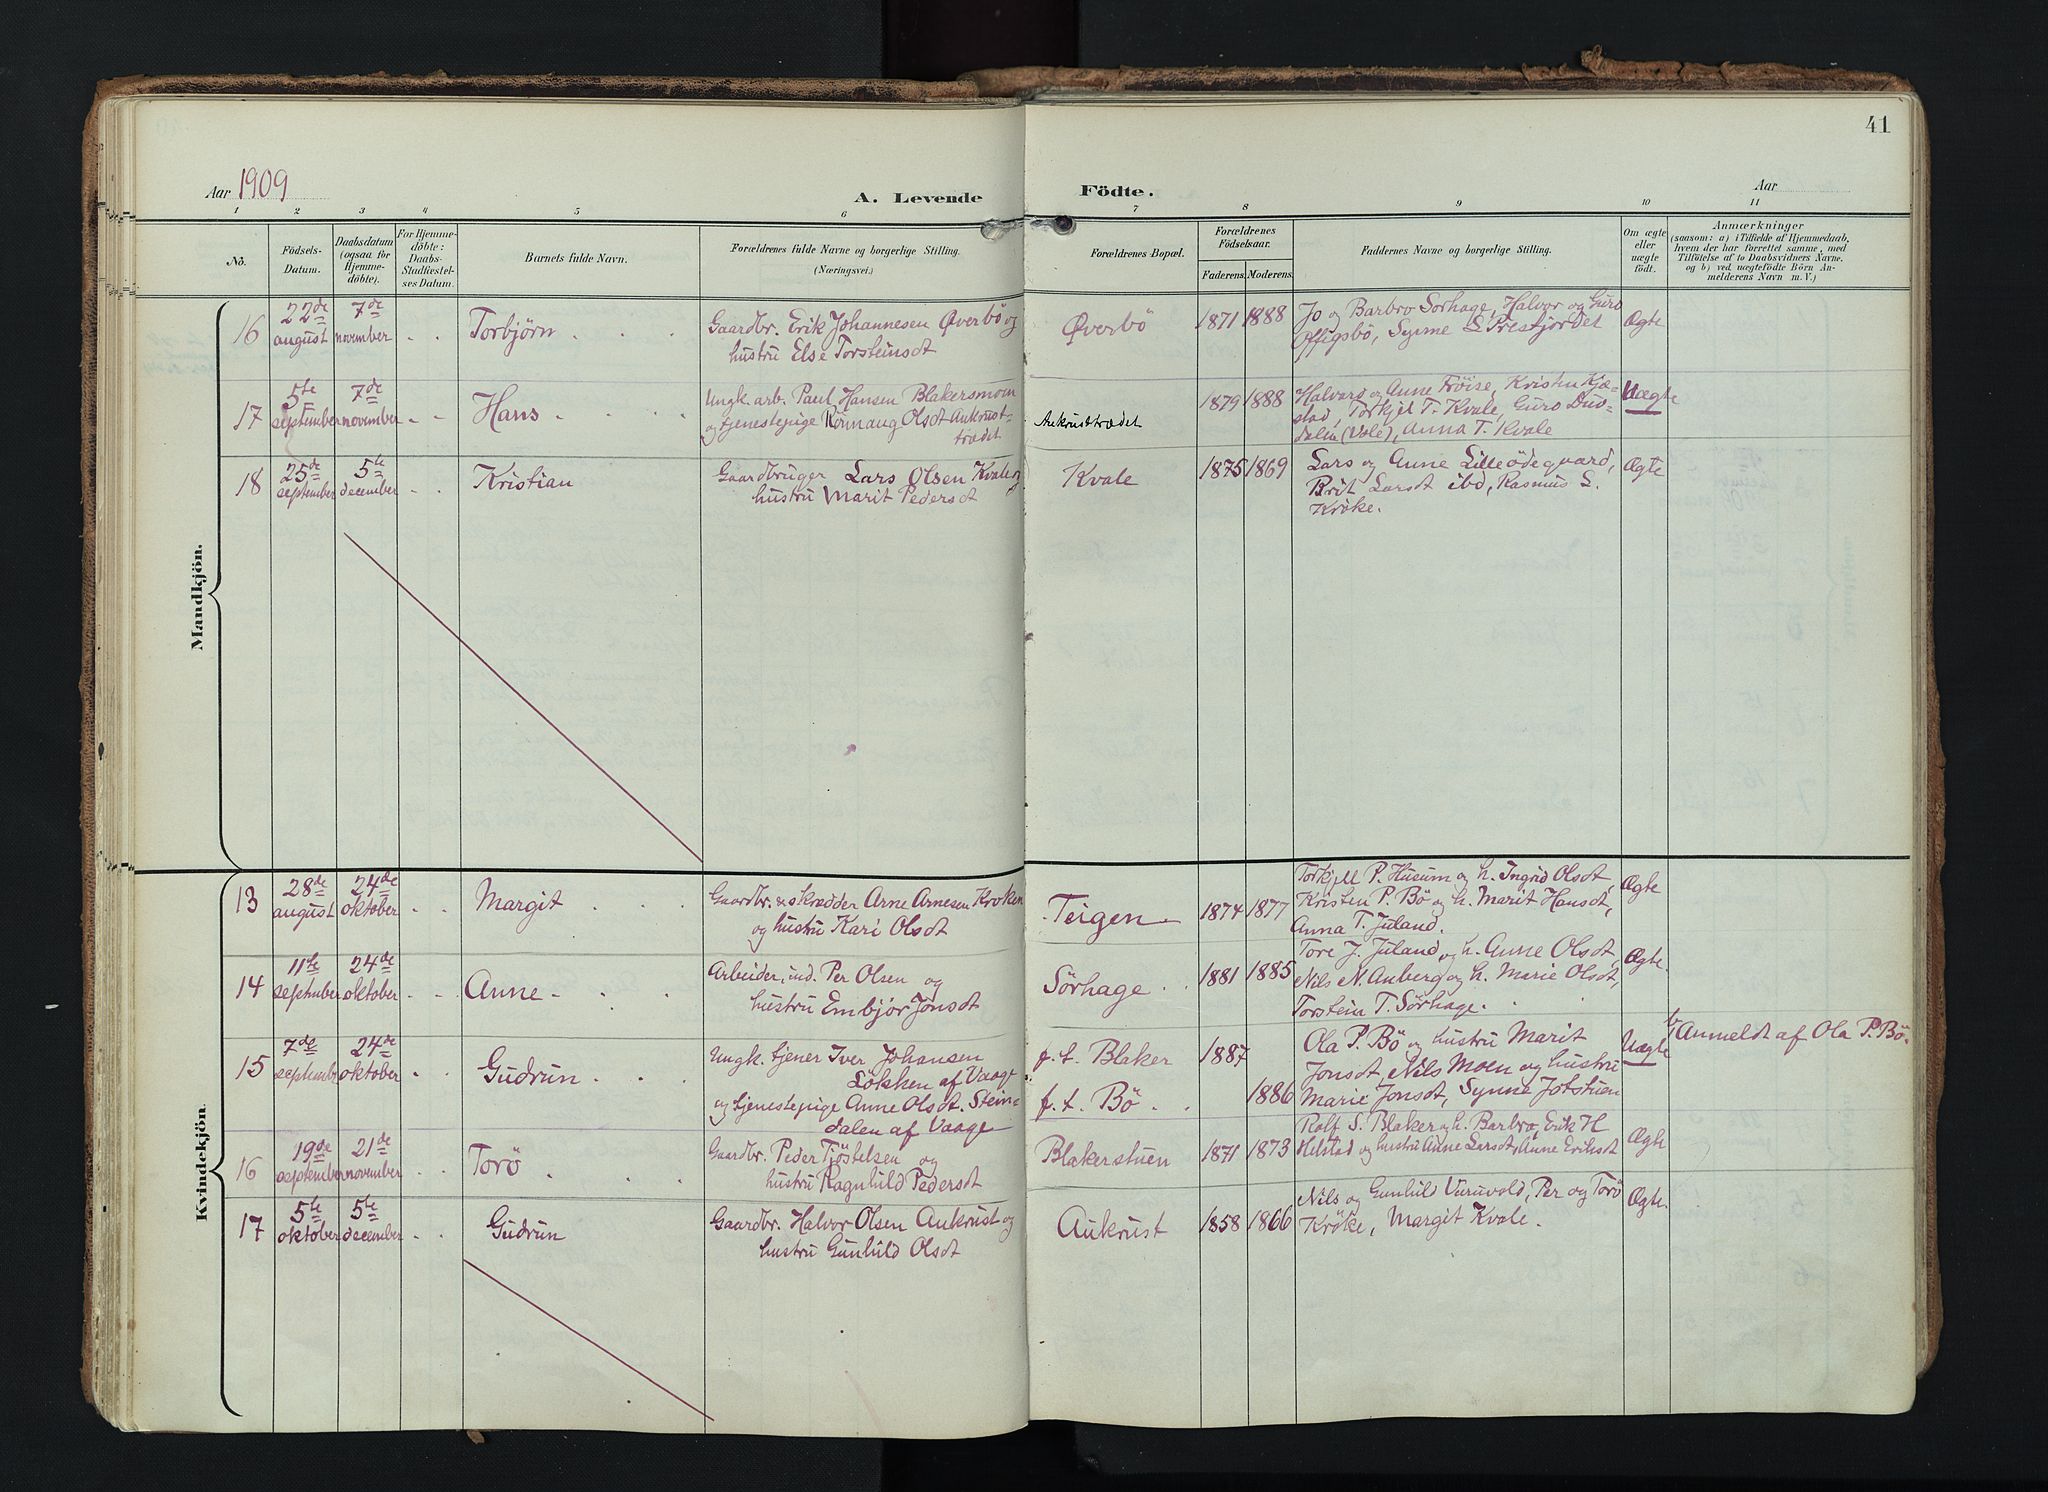 41
Aar 1909
A. Levende
Födte.
Aar
1 2 3 4 5 6 7 8 9 10 11
No.
Födsels-
Datum.
Daabsdatum
(ogsaa for
Hjemme-
döbte).
For Hjemme-
döbte:
Daabs-
Stadfæstel-
ses Datum.
Barnets fulde Navn.
Forældrenes fulde Navne og borgerlige Stilling.
(Næringsvei.)
Forældrenes Bopæl.
Forældrenes
Födselsaar.
Faderens. Moderens.
Faddernes Navne og borgerlige Stilling.
Om ægte
eller
uægte
födt.
Anmærkninger
(saasom: a) i Tilfælde af Hjemmedaab,
hvem der har forrettet samme, med
Tilföielse af to Daabsvidners Navne.
og b) ved uægtefödte Börn An-
melderens Navn m. V.)
Mandkjön.
16
22de
august
7de
november
Torbjørn
Gaardbr. Erik Johannesen Øverbö og
hustru Else Torsteinsdt
Øverbö
1871 1888
Jo og Barbro Sørhage, Halvor og Guro
Offigsbö, Synne S. Prestjordet
Ægte
17
5te
september
7de
november
Hans
Ungk. arb. Paul Hansen Blakersmoen
og tjenestepige Rönnaug Olsdt Aukrust-
trædet
Aukrusttrædet
1879 1888
Halvard og Anne Fröise, Kristen Kjæ-
stad, Torkjel T. Kvale, Guro
(Vole), Anna T. Kvale
Uægte
18
25de
september
5te
december
Kristian
Gaardbruger Lars Olsen Kvale og
hustru Marit Pedersdt
Kvale
1875 1869
Lars og Anne Lilleödegaard,
Brit Larsdt ibd, Rasmus S.
Kröke.
Ægte
Kvindekjön.
13
28de
august
24de
oktober
Margit
Gaardbr. & skrædder Arne Arnesen Kroken
og hustru Kari Olsdt
Teigen
1874 1877
Torkjell P. Husum og h. Ingrid Olsdt
Kristen P. Bö og h. Marit Hansdt,
Anna T. Juland.
Ægte
14
11te
september
24de
oktober
Anne
Arbeider, ind. Per Olsen og
hustru Embjør Jonsdt
Sörhage
1881 1885
Tore J. Juland, og h. Anne Olsdt,
Nils N. Auberg og h. Marie Olsdt,
Torstein T. Sörhage.
Ægte.
15
7de
september
24de
oktober
Gudrun
Ungk. tjener Iver Johansen
Lökken af Vaage
og tjenestepige Anne Olsdt. Stein-
dalen af Vaage
f. t. Blaker
f. t. Bö
1887
1886
Ola P. Bö og hustru Marit
Jonsdt, Nils Moen og hustru
Marie Jonsdt, Synne Jotstuen
Uægte
b) Anmeldt af Ola P. Bö.
16
19de
september
21de
november
Torö
Gaardbr. Peder Tjöstelsen og
hustru Ragnhild Pedersdt
Blakerstuen
1871 1873
Rolf S. Blaker og h. Barbro, Erik H
Helstad og hustru Anne Larsdt, Anne Eriksdt
Ægte
17
5te
oktober
5te
december
Gudrun
Gaardbr. Halvor Olsen Aukrust og
hustru Gunhild Olsdt
Aukrust
1858 1866
Nils og Gunhild Uruvold, Per og Torö
Kröke, Margit Kvale.
Ægte.